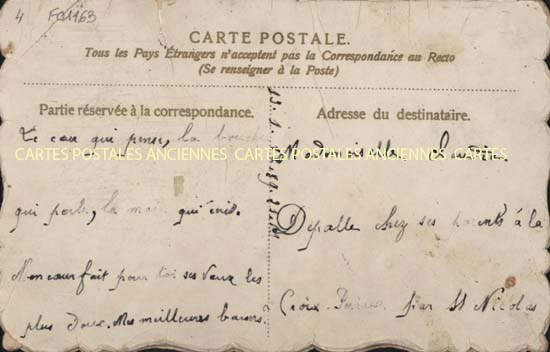 4 FC1163
CARTE POSTALE.
Tous les Pays Étrangers n'acceptent pas la Correspondance au Recto
(Se renseigner à la Poste)
Partie réservée à la correspondance.
qui pense, la bouche
qui parle, la main qui écrit.
Mon cœur fait pour toi ses vœux les
plus doux. Mes meilleures baisers.
Adresse du destinataire.
Mademoiselle
Dépalle chez ses parents à la
Croix par St Nicolas
CARTES POSTALES ANCIENNES CARTES POSTALES ANCIENNES CARTES